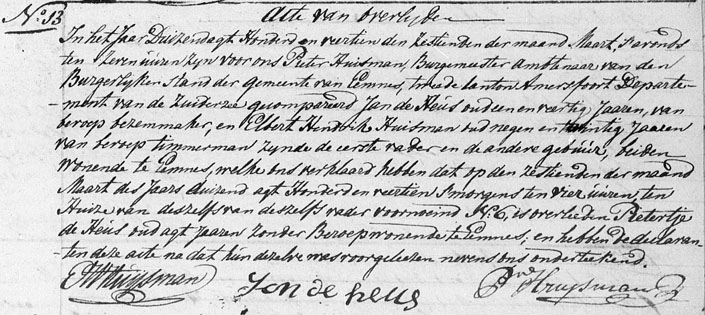 No. 13
Acte van overlyden
In het Jaar Duizendagt Honderd en veertien den Zestienden der maand Maart, S'avonds
ten zeven uuren zyn voor ons Pieter Huisman, Burgemeester Ambtenaar van den
Burgerlyken Stand der gemeente van Eemnes, tweede Canton Amersfoort Departe-
ment van de Zuiderzee gecompareerd, Jan de Heus oud een en veertig Jaaren, van
beroep bezemmaker, en Elbert Hendrik Huisman oud negen en twintig Jaaren
van beroep timmerman zynde de eerste vader en de andere gebuur, beiden
wonende te Eemnes, welke ons verklaard hebben dat op den zestienden der maand
Maart des Jaars duizend agt Honderd en veertien S'morgens ten vier uuren ten
Huize van deszelfs van deszelfs vader voornoemd No. 6, is overleden Pietertje
de Heus oud agt Jaaren zonder Beroep wonende te Eemnes; en hebben de declaran-
ten deze acte na dat hun dezelve was voorgelezen nevens ons onderteekend.
EHHuysman Jan de heus P Huysman